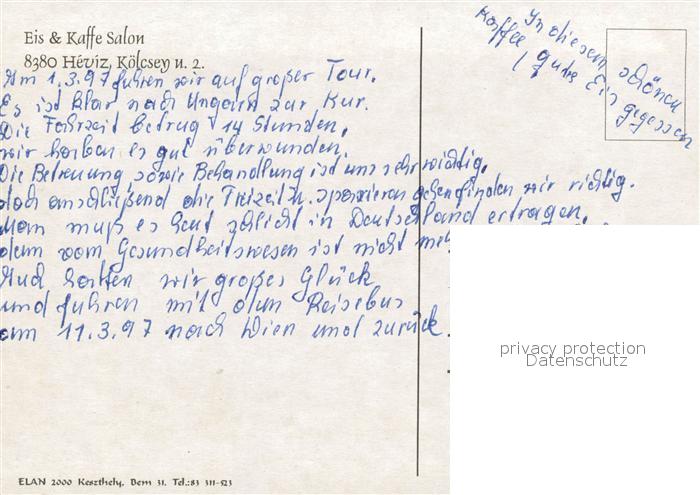 Eis & Kaffe Salon
8380 Hévíz, Kölcsey u. 2.
In diesem schönen
Kaffee gutes Eis gegessen
Am 1.3.97 fuhren wir auf großer Tour.
Es ist klar nach Ungarn zur Kur.
Die Fahrzeit betrug 14 Stunden,
wir haben es gut überwunden.
Die Betreuung sowie Behandlung ist uns sehr wichtig,
doch anschließend die Freizeit u. spazieren gehen finden wir richtig.
Man muß es heut schlicht in Deutschland ertragen,
denn vom Gesundheitswesen ist nicht
Auch hatten wir großes Glück
und fuhren mit dem Reisebus
am 11.3.97 nach Wien und zurück.
privacy protection
Datenschutz
ELAN 2000 Keszthely, Bem 31. Tel.:83 311-523